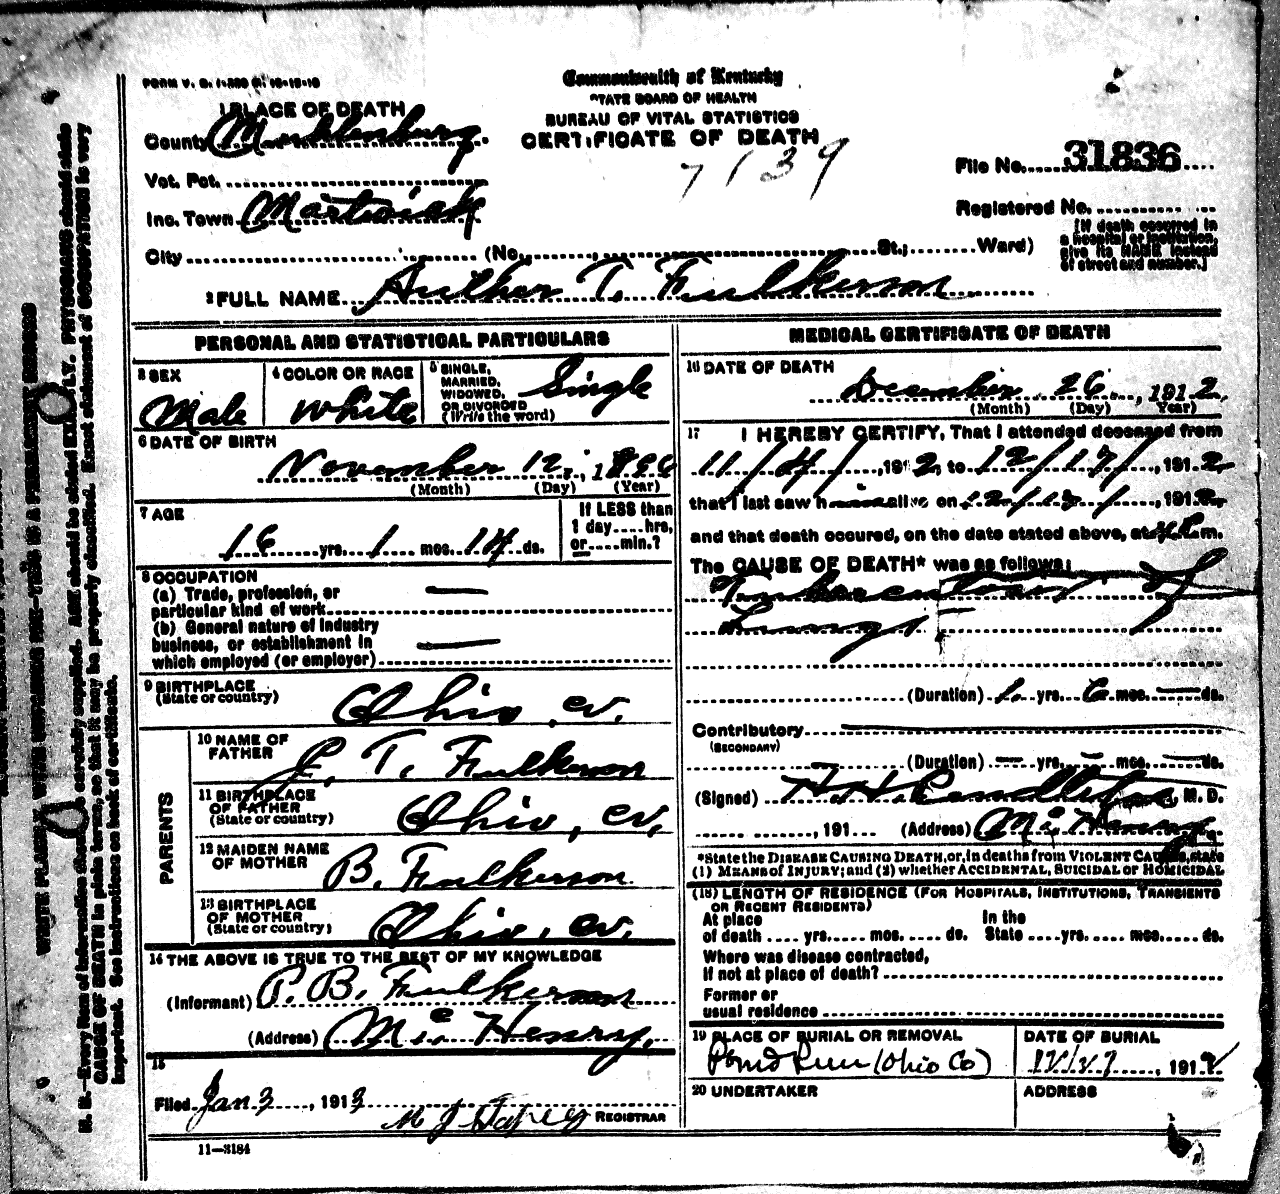 FORM V. S. 1-350
Commonwealth of Kentucky
STATE BOARD OF HEALTH
BUREAU OF VITAL STATISTICS
CERTIFICATE OF DEATH
7139
1 PLACE OF DEATH
County Muhlenburg
Vot. Pct.
Inc. Town Martwick
City (No. St.; Ward)
File No. 31836
Registered No.
[If death occurred in
a hospital or institution,
give its NAME instead
of street and number.]
2 FULL NAME Author T. Fulkerson
PERSONAL AND STATISTICAL PARTICULARS
3 SEX
Male
4 COLOR OR RACE
White
5 SINGLE,
MARRIED,
WIDOWED,
OR DIVORCED
(Write the word)
Single
6 DATE OF BIRTH
November 12, 18
(Month) (Day) (Year)
7 AGE
16 yrs. 1 mos. 14 ds.
If LESS than
1 day....hrs,
or.....min.?
8 OCCUPATION
(a) Trade, profession, or
particular kind of work
(b) General nature of industry
business, or establishment in
which employed (or employer)
9 BIRTHPLACE
(State or country)
Ohio, co.
PARENTS
10 NAME OF
FATHER
J. T. Fulkerson
11 BIRTHPLACE
OF FATHER
(State or country)
Ohio, co.
12 MAIDEN NAME
OF MOTHER
B. Fulkerson
13 BIRTHPLACE
OF MOTHER
(State or country)
Ohio, co.
14 THE ABOVE IS TRUE TO THE BEST OF MY KNOWLEDGE
(Informant) P. B. Fulkerson
(Address) Mc Henry,
15
Filed Jan 3, 1913
REGISTRAR
11—3184
MEDICAL CERTIFICATE OF DEATH
16 DATE OF DEATH
December 26, 1912,
(Month) (Day) Year)
17 I HEREBY CERTIFY, That I attended deceased from
11/4/, 1912, to 12/17/, 1912
that I last saw him alive on 12/17/, 1912
and that death occured, on the date stated above, at m.
The CAUSE OF DEATH* was as follows:
Tuberculosis of
Lungs
(Duration) 1 yrs. 6 mos. — ds.
Contributory
(SECONDARY)
(Duration) — yrs. — mos. — ds.
(Signed) H. H. Pendleton M. D.
, 191 (Address) Mc Henry
*State the DISEASE CAUSING DEATH, or, in deaths from VIOLENT CAUSES, state
(1) MEANS OF INJURY; and (2) whether ACCIDENTAL, SUICIDAL or HOMICIDAL
(18) LENGTH OF RESIDENCE (FOR HOSPITALS, INSTITUTIONS, TRANSIENTS
OR RECENT RESIDENTS)
At place In the
of death .... yrs. .... mos. .... ds. State ....yrs. .... mos. .... ds.
Where was disease contracted,
If not at place of death?
Former or
usual residence
19 PLACE OF BURIAL OR REMOVAL
Pond Run (Ohio Co)
DATE OF BURIAL
12/27, 1912
20 UNDERTAKER
ADDRESS
WRITE PLAINLY WITH UNFADING INK—THIS IS A PERMANENT RECORD
N. B.—Every item of information should be carefully supplied. AGE should be stated EXACTLY. PHYSICIANS should state
CAUSE OF DEATH in plain terms, so that it may be properly classified. Exact statement of OCCUPATION is very
important. See instructions on back of certificate.